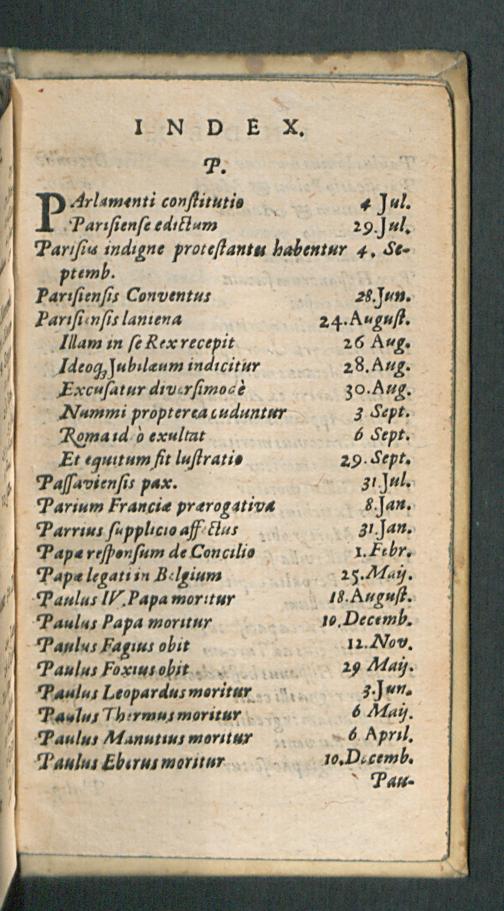 INDEX.
P.
PArlamenti constitutio 4 Jul.
Parisiense edictum 29.Jul.
Parisiis indigne protestantes habentur 4. Se-
ptemb.
Parisiensis Conventus 28.Jun.
Parisiensis laniena 24.August.
Illam in se Rex recepit 26 Aug.
Ideoq; Jubilæum indicitur 28.Aug.
Excusatur diversimodè 30.Aug.
Nummi propterea cuduntur 3 Sept.
Roma id ò exultat 6 Sept.
Et equitum fit lustratio 29.Sept.
Passaviensis pax. 31.Jul.
Parium Franciæ prærogativa 8.Jan.
Parrius supplicio aff ctus 31.Jan.
Papæ responsum de Concilio 1.Febr.
Papæ legati in Belgium 25.Maij.
Paulus IV.Papa moritur 18.August.
Paulus Papa moritur 10.Decemb.
Paulus Fagius obit 12.Nov.
Paulus Foxius obit 29 Maij.
Paulus Leopardus moritur 3.Jun.
Paulus Thermus moritur 6 Maij.
Paulus Manutius moritur 6 April.
Paulus Eberus moritur 10.Decemb.
Pau-